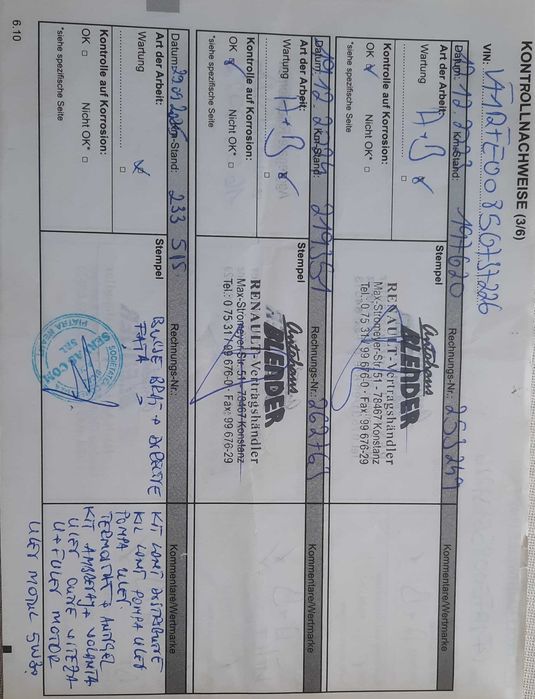 KONTROLLNACHWEISE (3/6)
VIN:
Datum: Km-Stand: 197620 Rechnungs-Nr.: Kommentare/Wertmarke
Art der Arbeit: Stempel
Wartung A+B
Kontrolle auf Korrosion:
OK Nicht OK*
*siehe spezifische Seite
Autohaus
BLENDER
RENAULT-Vertragshändler
Max-Stromeyer-Str. 51, 78467 Konstanz
Tel.: 0 75 31 / 99 676-0 · Fax: 99 676-29
Datum: Km-Stand: 219351 Rechnungs-Nr.: 262764 Kommentare/Wertmarke
Art der Arbeit: Stempel
Wartung A+B
Kontrolle auf Korrosion:
OK Nicht OK*
*siehe spezifische Seite
Autohaus
BLENDER
RENAULT-Vertragshändler
Max-Stromeyer-Str. 51, 78467 Konstanz
Tel.: 0 75 31 / 99 676-0 · Fax: 99 676-29
Datum: Km-Stand: 233 515 Rechnungs-Nr.: Kommentare/Wertmarke
Art der Arbeit: Stempel
Wartung
Kontrolle auf Korrosion:
OK Nicht OK*
*siehe spezifische Seite
FATA
SRL
PIATRA NEAMT
KIT LANT DISTRIBUTIE
KIT LANT POMPA ULEI
POMPA ULEI
TERMOSTAT + ANTIGEL
KIT AMBREIAJ + VOLANTA
ULEI CUTIE VITEZA
ULEI MOTUL 5W30
6.10